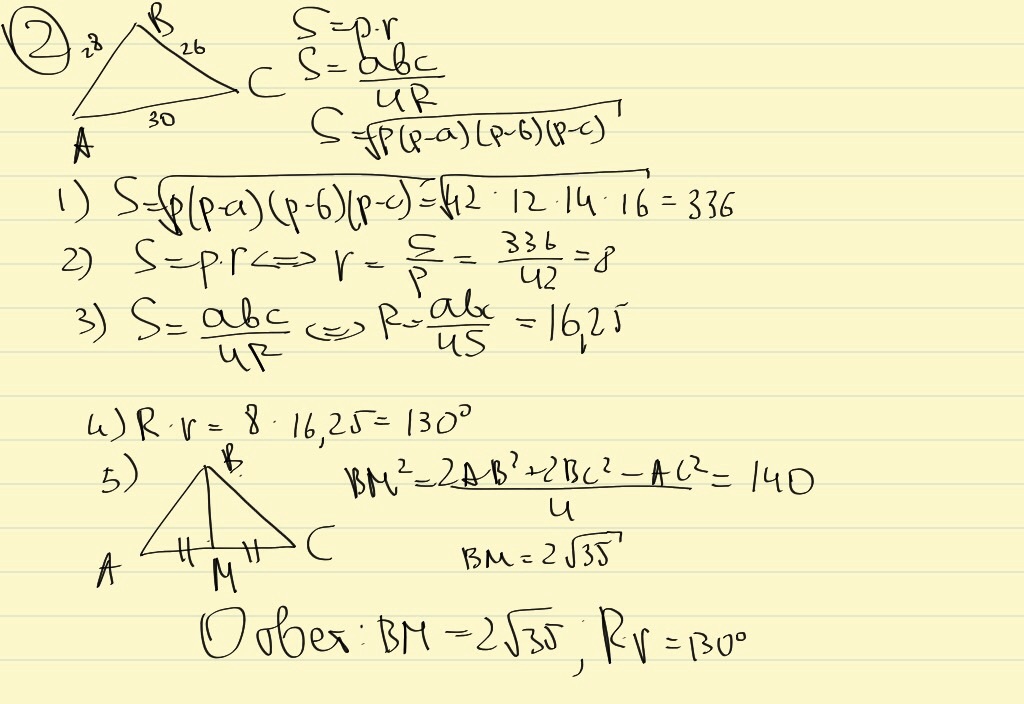 2
B
28
26
A
30
C
S=p·r
S=abc/4R
S=√p(p-a)(p-b)(p-c)
1) S=√p(p-a)(p-b)(p-c)=√42·12·14·16=336
2) S=p·r<=>r=S/p=336/42=8
3) S=abc/4R<=>R=abc/4S=16,25
4) R·r=8·16,25=130°
5)
B
A
M
C
BM²=2AB²+2BC²-AC²/4=140
BM=2√35
Ответ: BM=2√35; R·r=130°